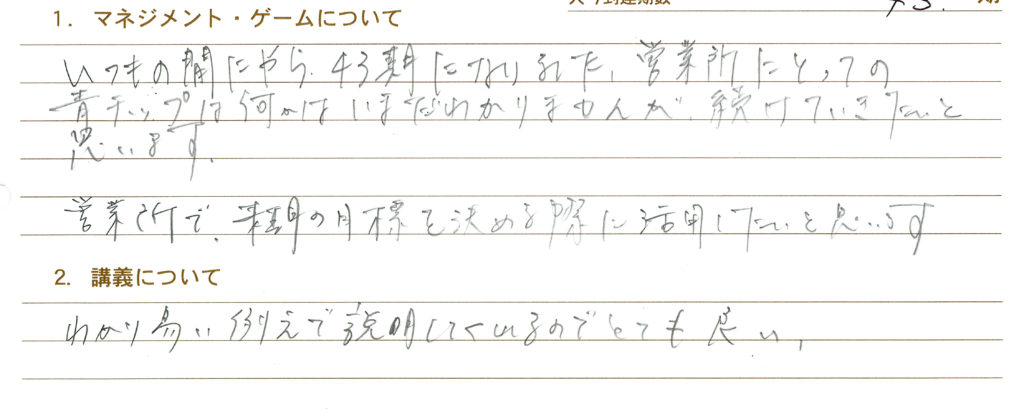 入り到達期数 43. 期
1. マネジメント・ゲームについて
いつもの間にやら、43期になりました、営業所にとっての
青チップは何かはいまだわかりませんが、続けていきたいと
思います。
営業所で、来期の目標を決める際に活用したいと思います
2. 講義について
わかり易い例えで説明してくれるのでとても良い、